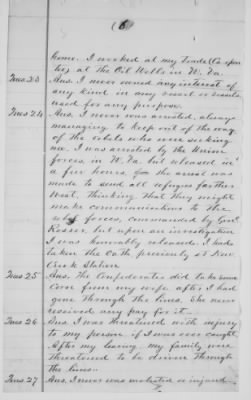 (6)
home. I worked at my trade (Carpen
ter) at the Oil Wells in W. Va.
Ques. 23 Ans. I never owned any interest of
any kind in any vessel or vessels
used for any purpose.
Ques. 24 Ans. I never was arrested, always
managing to keep out of the way
of the rebels who were seeking
me. I was arrested by the Union
forces, in W. Va. but released in
a few hours. the arrest was
made to send all refugees farther
West, thinking that they might
make communications to the
rebel forces, commanded by Genl
Rosser, but upon an investigation
I was honorably released. I had
taken the Oath previously at New
Creek Station.
Ques. 25 Ans. The Confederates did take some
Corn from my wife after I had
gone through the lines. She never
received any pay for it.
Ques. 26 Ans. I was threatened with injury
to my person if I was ever caught.
After my leaving my family were
threatened to be driven through
the lines.
Ques. 27 Ans. I never was molested or injured